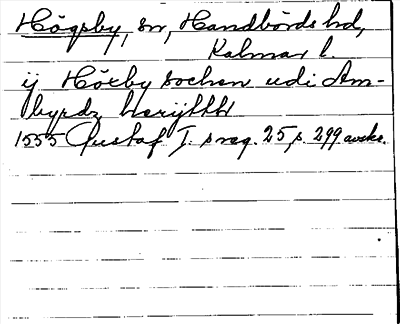 Högsby, sn, Handbörds hd,
Kalmar l.
ij Höxby sochen udi Am-
byrdz herijtthh
1555 Gustaf I. s reg. 25, s. 299 avskr.